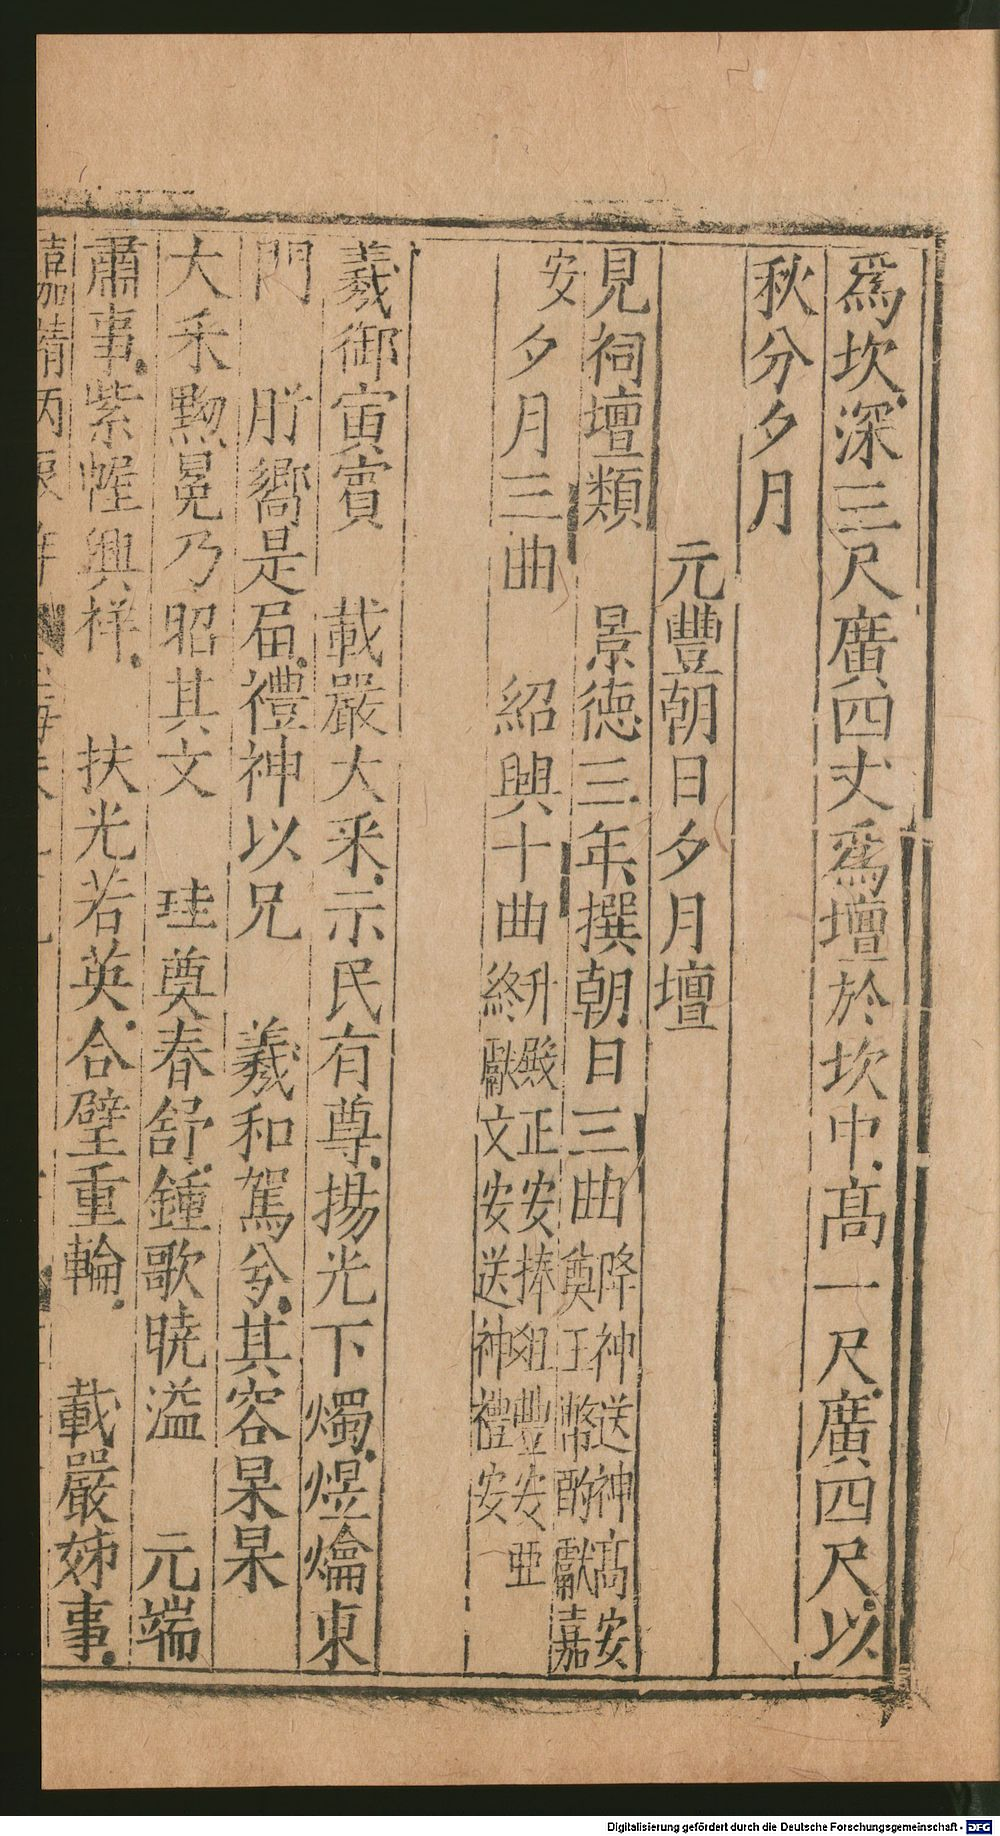 爲坎深三尺廣四丈爲壇於坎中高一尺廣四尺以
秋分夕月
元豐朝日夕月壇
見祠壇類　景德三年撰朝日三曲降神送神髙安奠玉幣酌獻嘉
安夕月三曲　紹興十曲升殿正安捧俎豐安亞終獻文安送神禮安
羲御寅賓　載嚴大采示民有尊揚光下燭煜爚東
門　肸嚮是届禮神以兄　羲和駕兮其容杲杲
大采黝冕乃昭其文　珪奠春舒鍾歌曉溢　元端
肅事紫幄興祥　扶光若英合璧重輪　載嚴姊事
嘉靖丙辰年
Digitalisierung gefördert durch die Deutsche Forschungsgemeinschaft - DFG